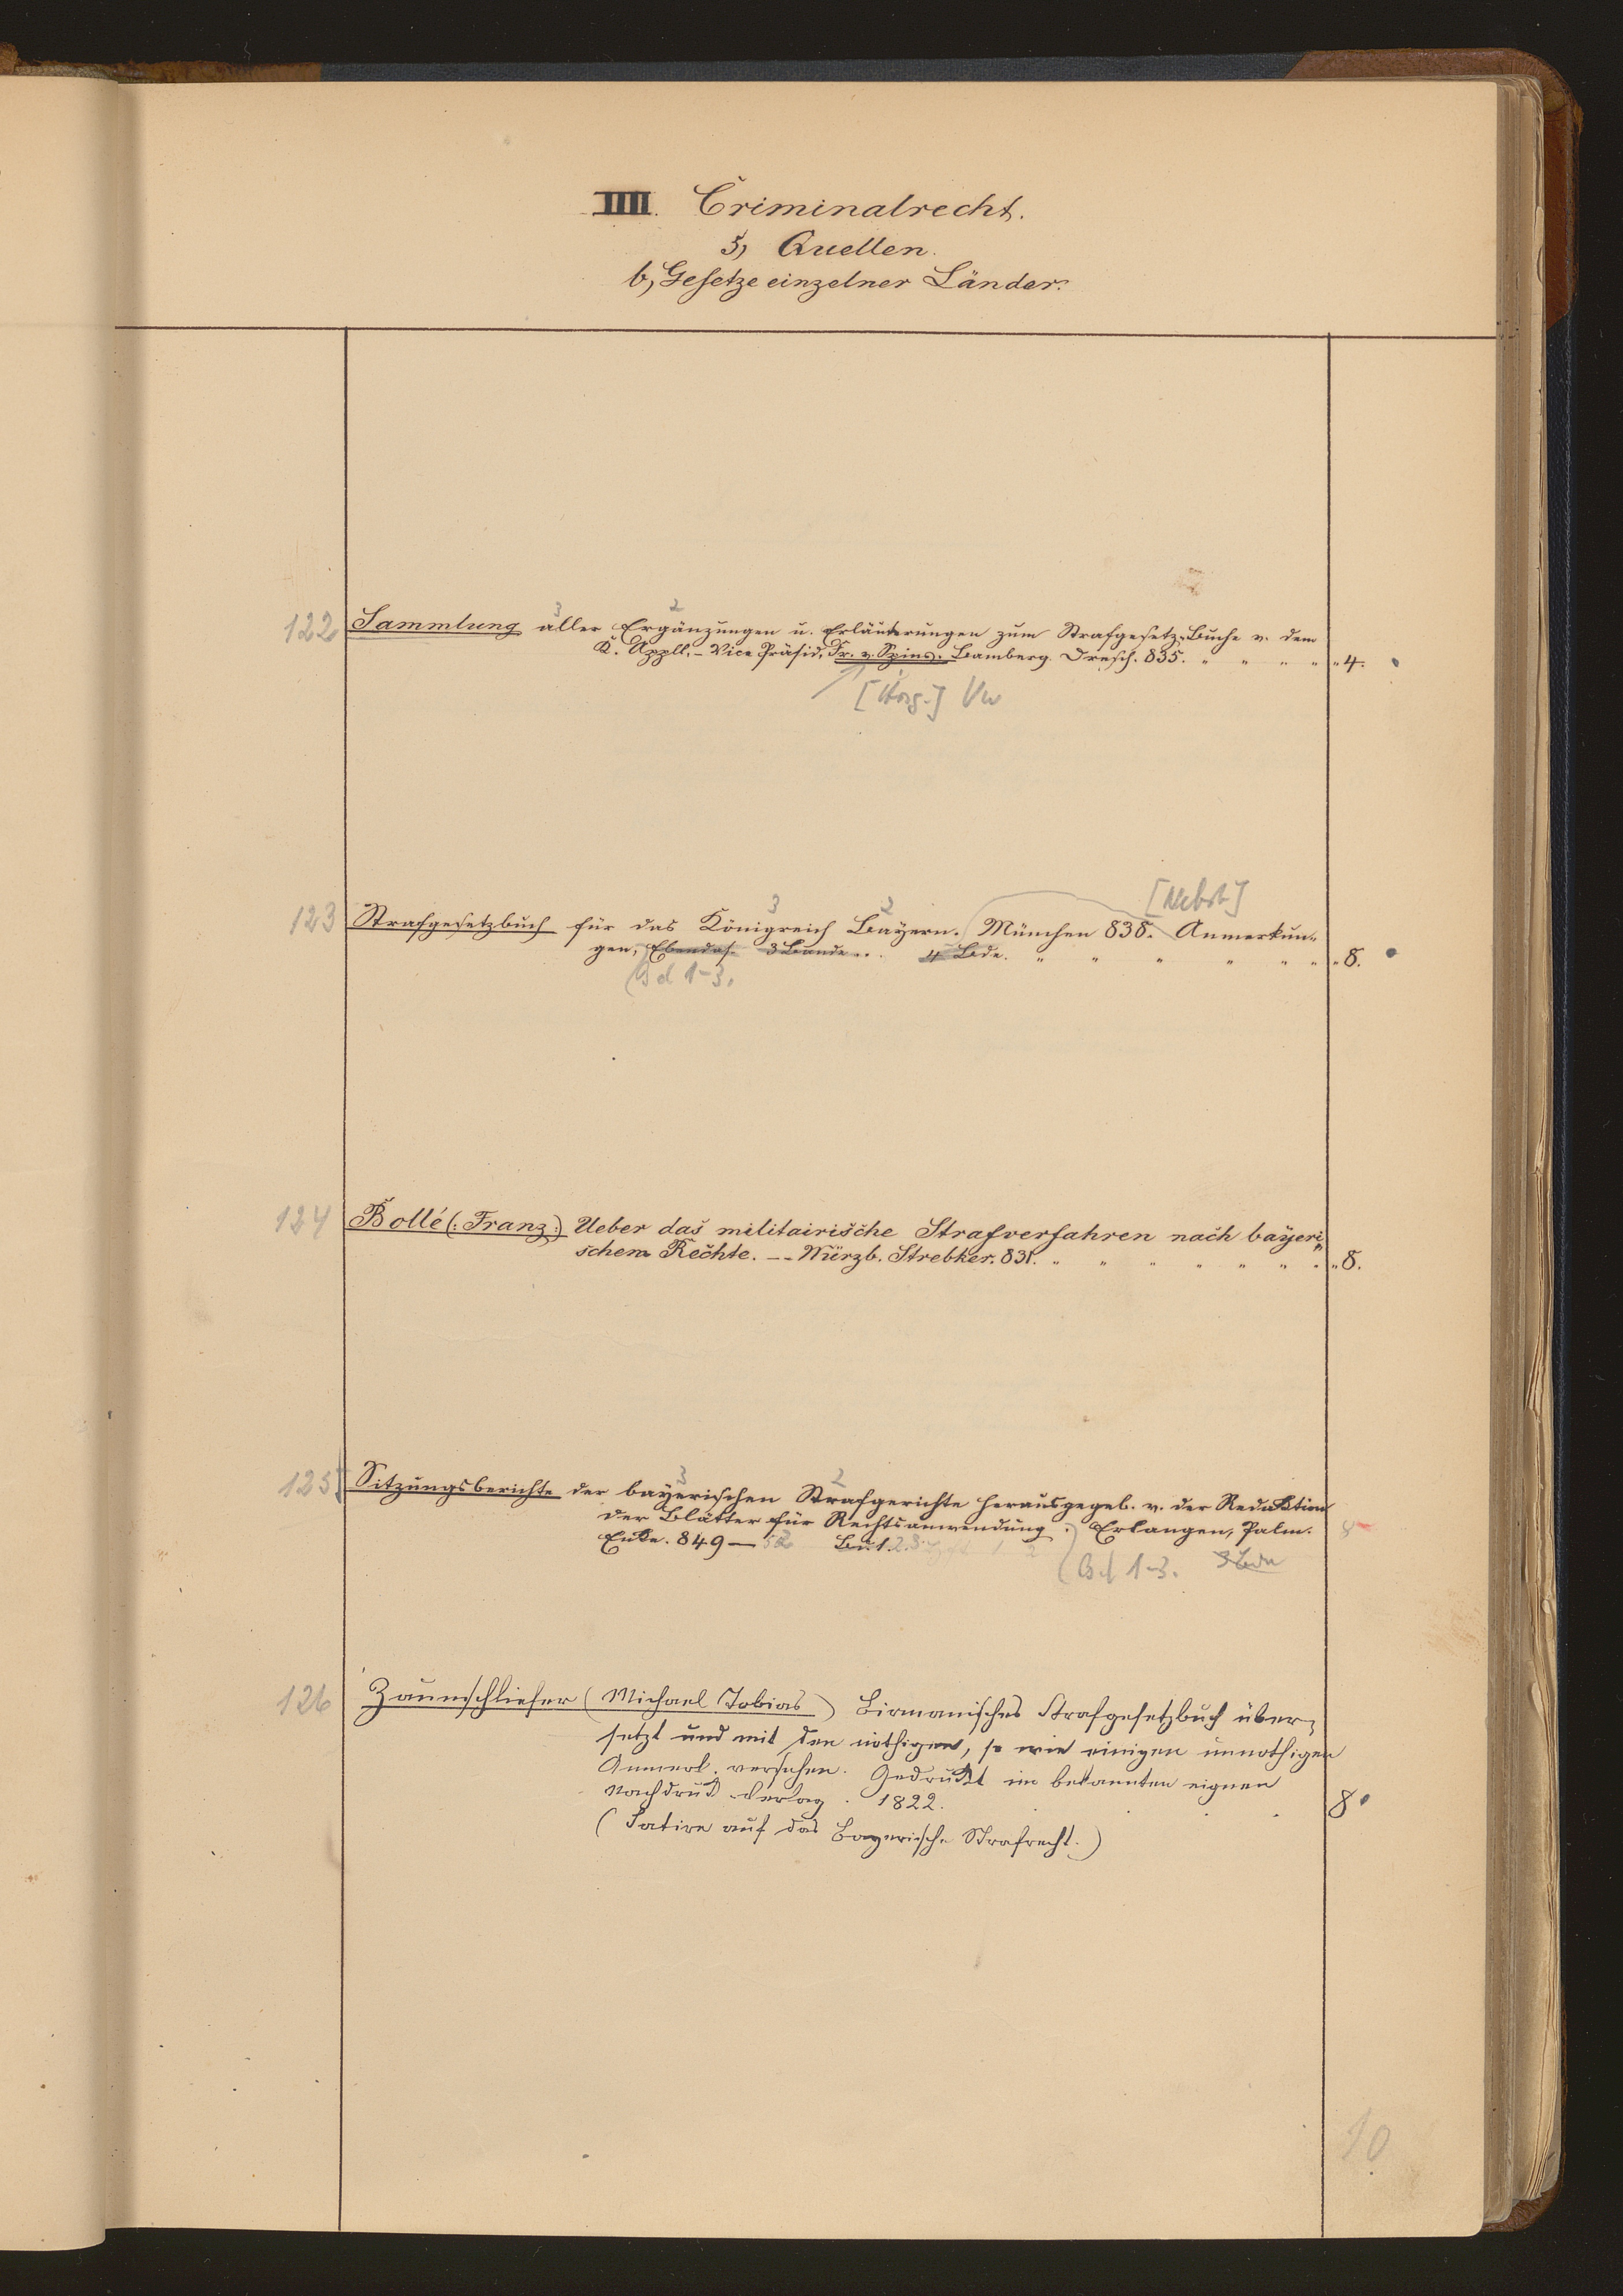 IIII. Criminalrecht.
5) Quellen.
b, Gesetze einzelner Länder.
3 2
122 Sammlung aller Ergänzungen u. Erläuterungen zum Strafgesetz-Buche v. dem
K. Appll.-Vice Präsid. Fr. v. Spies. Bamberg. Dresch. 835. " " " " " 4.
[Hrsg.]
[Nebst]
3 2
123 Strafgesetzbuch für das Königreich Bayern. München 838. Anmerkun-
gen, Ebendas. 3 Bände. 4 Bde. " " " " " " " 8.
(Bd 1-3.
124 Bollé (: Franz :) Ueber das militairische Strafverfahren nach bayeri-
schem Rechte. -- Würzb. Strebker. 831. " " " " " " " " 8.
3 2
125 Sitzungsberichte der bayerischen Strafgerichte herausgegeb. v. der Redaktion
der Blätter für Rechtsanwendung.) Erlangen, Palm. 8
Enke. 849 — 52 Bd. 1. 2. 3.
(Bd 1-3. 3 Bde
126 Zaunschliefer (Michael Tobias) Birmanisches Strafgesetzbuch über-
setzt und mit den nöthigen, so wie einigen unnöthigen
Anmerk. versehen. Gedruckt im bekannten eignen
Nachdruck-Verlag. 1822. 8°
(Satire auf das Bayerische Strafrecht.)
10